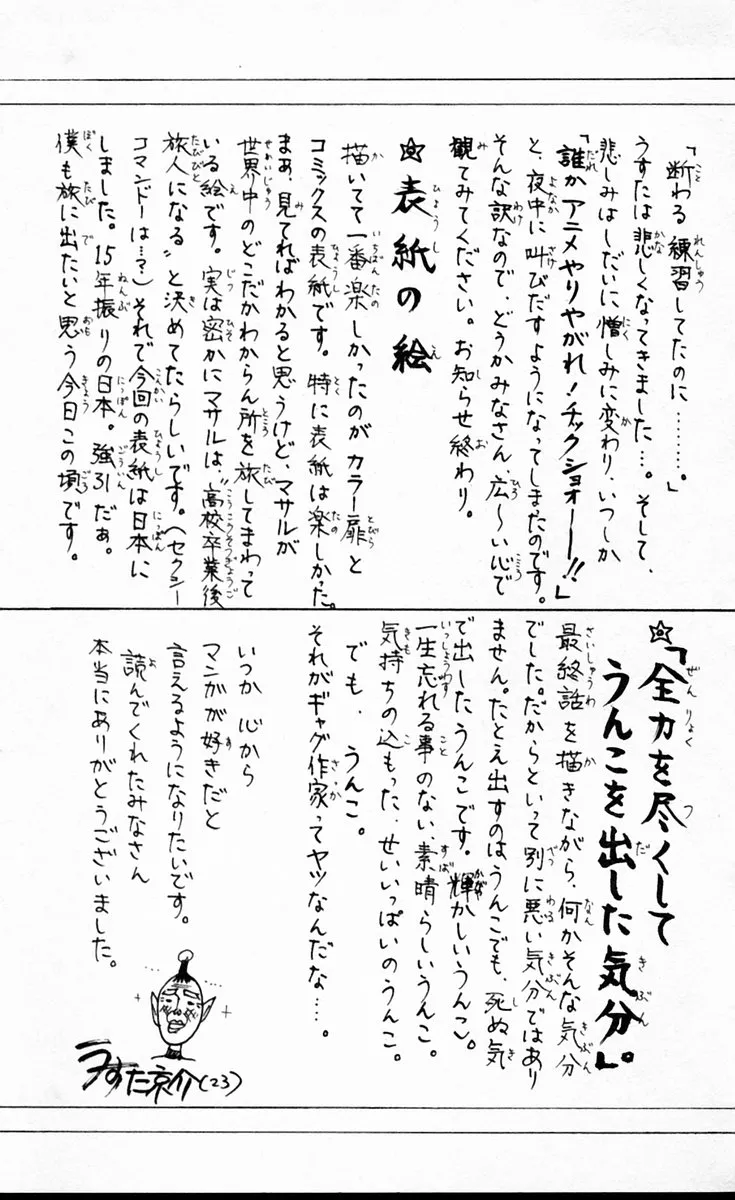 「断わる練習してたのに………。」
うすたは悲しくなってきました…。そして、
悲しみはしだいに憎しみに変わり、いつしか
「誰かアニメやりやがれ！チックショオーー!!」
と、夜中に叫びだすようになってしまたのです。
そんな訳なので、どうかみなさん、広〜い心で
観てみてください。お知らせ終わり。
☆表紙の絵
描いてて一番楽しかったのがカラー扉と
コミックスの表紙です。特に表紙は楽しかった。
まあ、見てればわかると思うけど、マサルが
世界中のどこだかわからん所を旅してまわって
いる絵です。実は密かにマサルは、〝高校卒業後
旅人になる〟と決めてたらしいです。（セクシー
コマンドーは…？）それで今回の表紙は日本に
しました。15年振りの日本。強引だぁ。
僕も旅に出たいと思う今日この頃です。
☆「全力を尽くして
うんこを出した気分」。
最終話を描きながら、何かそんな気分
でした。だからといって別に悪い気分ではあり
ません。たとえ出すのはうんこでも、死ぬ気
で出したうんこです。輝かしいうんこ。
一生忘れる事のない、素晴らしいうんこ。
気持ちの込もった、せいいっぱいのうんこ。
でも、うんこ。
それがギャグ作家ってヤツなんだな…。
いつか心から
マンガが好きだと
言えるようになりたいです。
読んでくれたみなさん
本当にありがとうございました。
うすた京介(23)